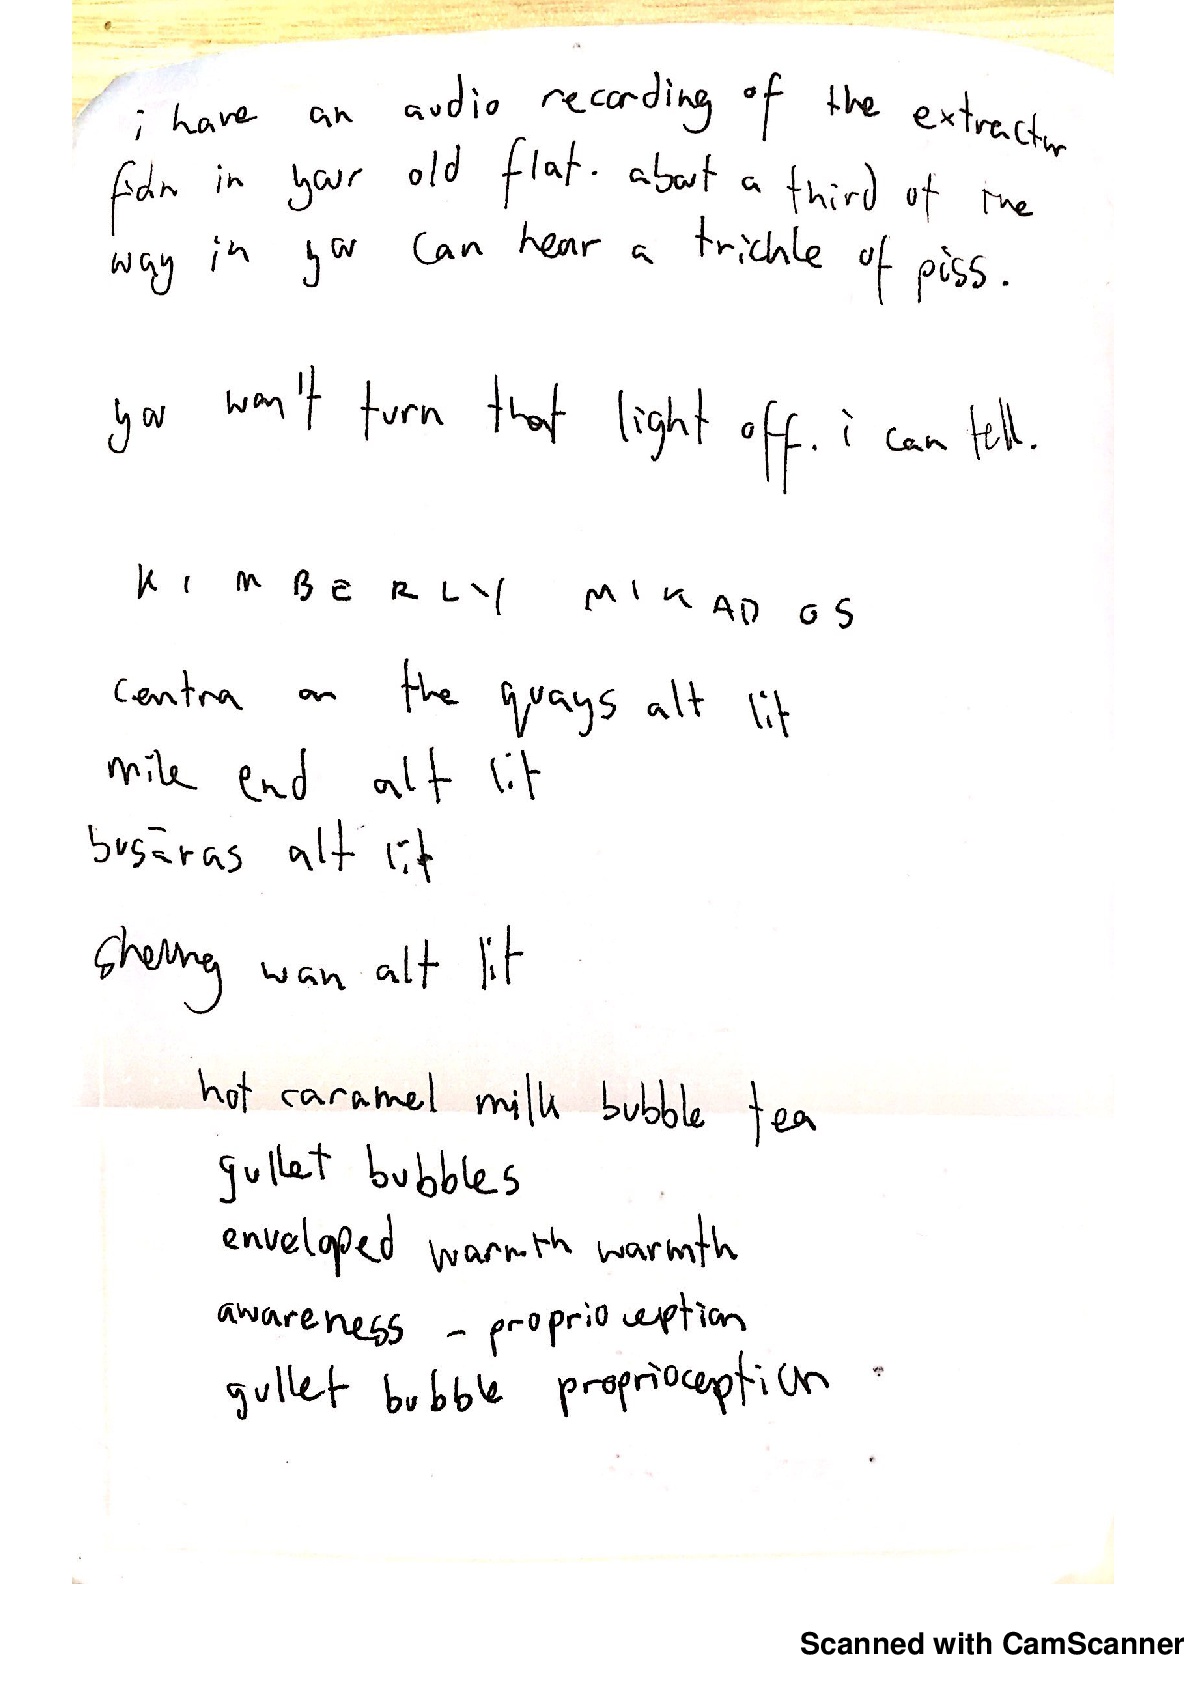 i have an audio recording of the extractor
fan in your old flat. about a third of the
way in you can hear a trickle of piss.
you won't turn that light off. i can tell.
KIMBERLY MIKADOS
centra on the quays alt lit
mile end alt lit
busáras alt lit
sheung wan alt lit
hot caramel milk bubble tea
gullet bubbles
enveloped warmth warmth
awareness - proprioception
gullet bubble proprioception
Scanned with CamScanner